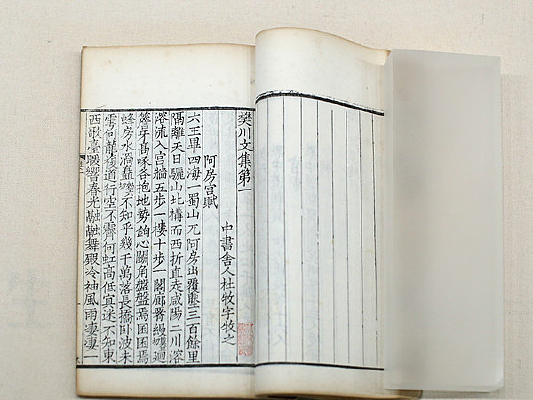 樊川文集第一
中書舍人杜牧字牧之
阿房宮賦
六王畢四海一蜀山兀阿房出覆壓三百餘里
隔離天日驪山北構而西折直走咸陽二川溶
溶流入宮牆五步一樓十步一閣廊腰縵迴
簷牙高啄各抱地勢鉤心鬬角盤盤焉囷囷焉
蜂房水渦矗不知乎幾千萬落長橋卧波未
雲何龍複道行空不霽何虹高低冥迷不知東
西歌臺暖響春光融融舞殿冷袖風雨淒淒一